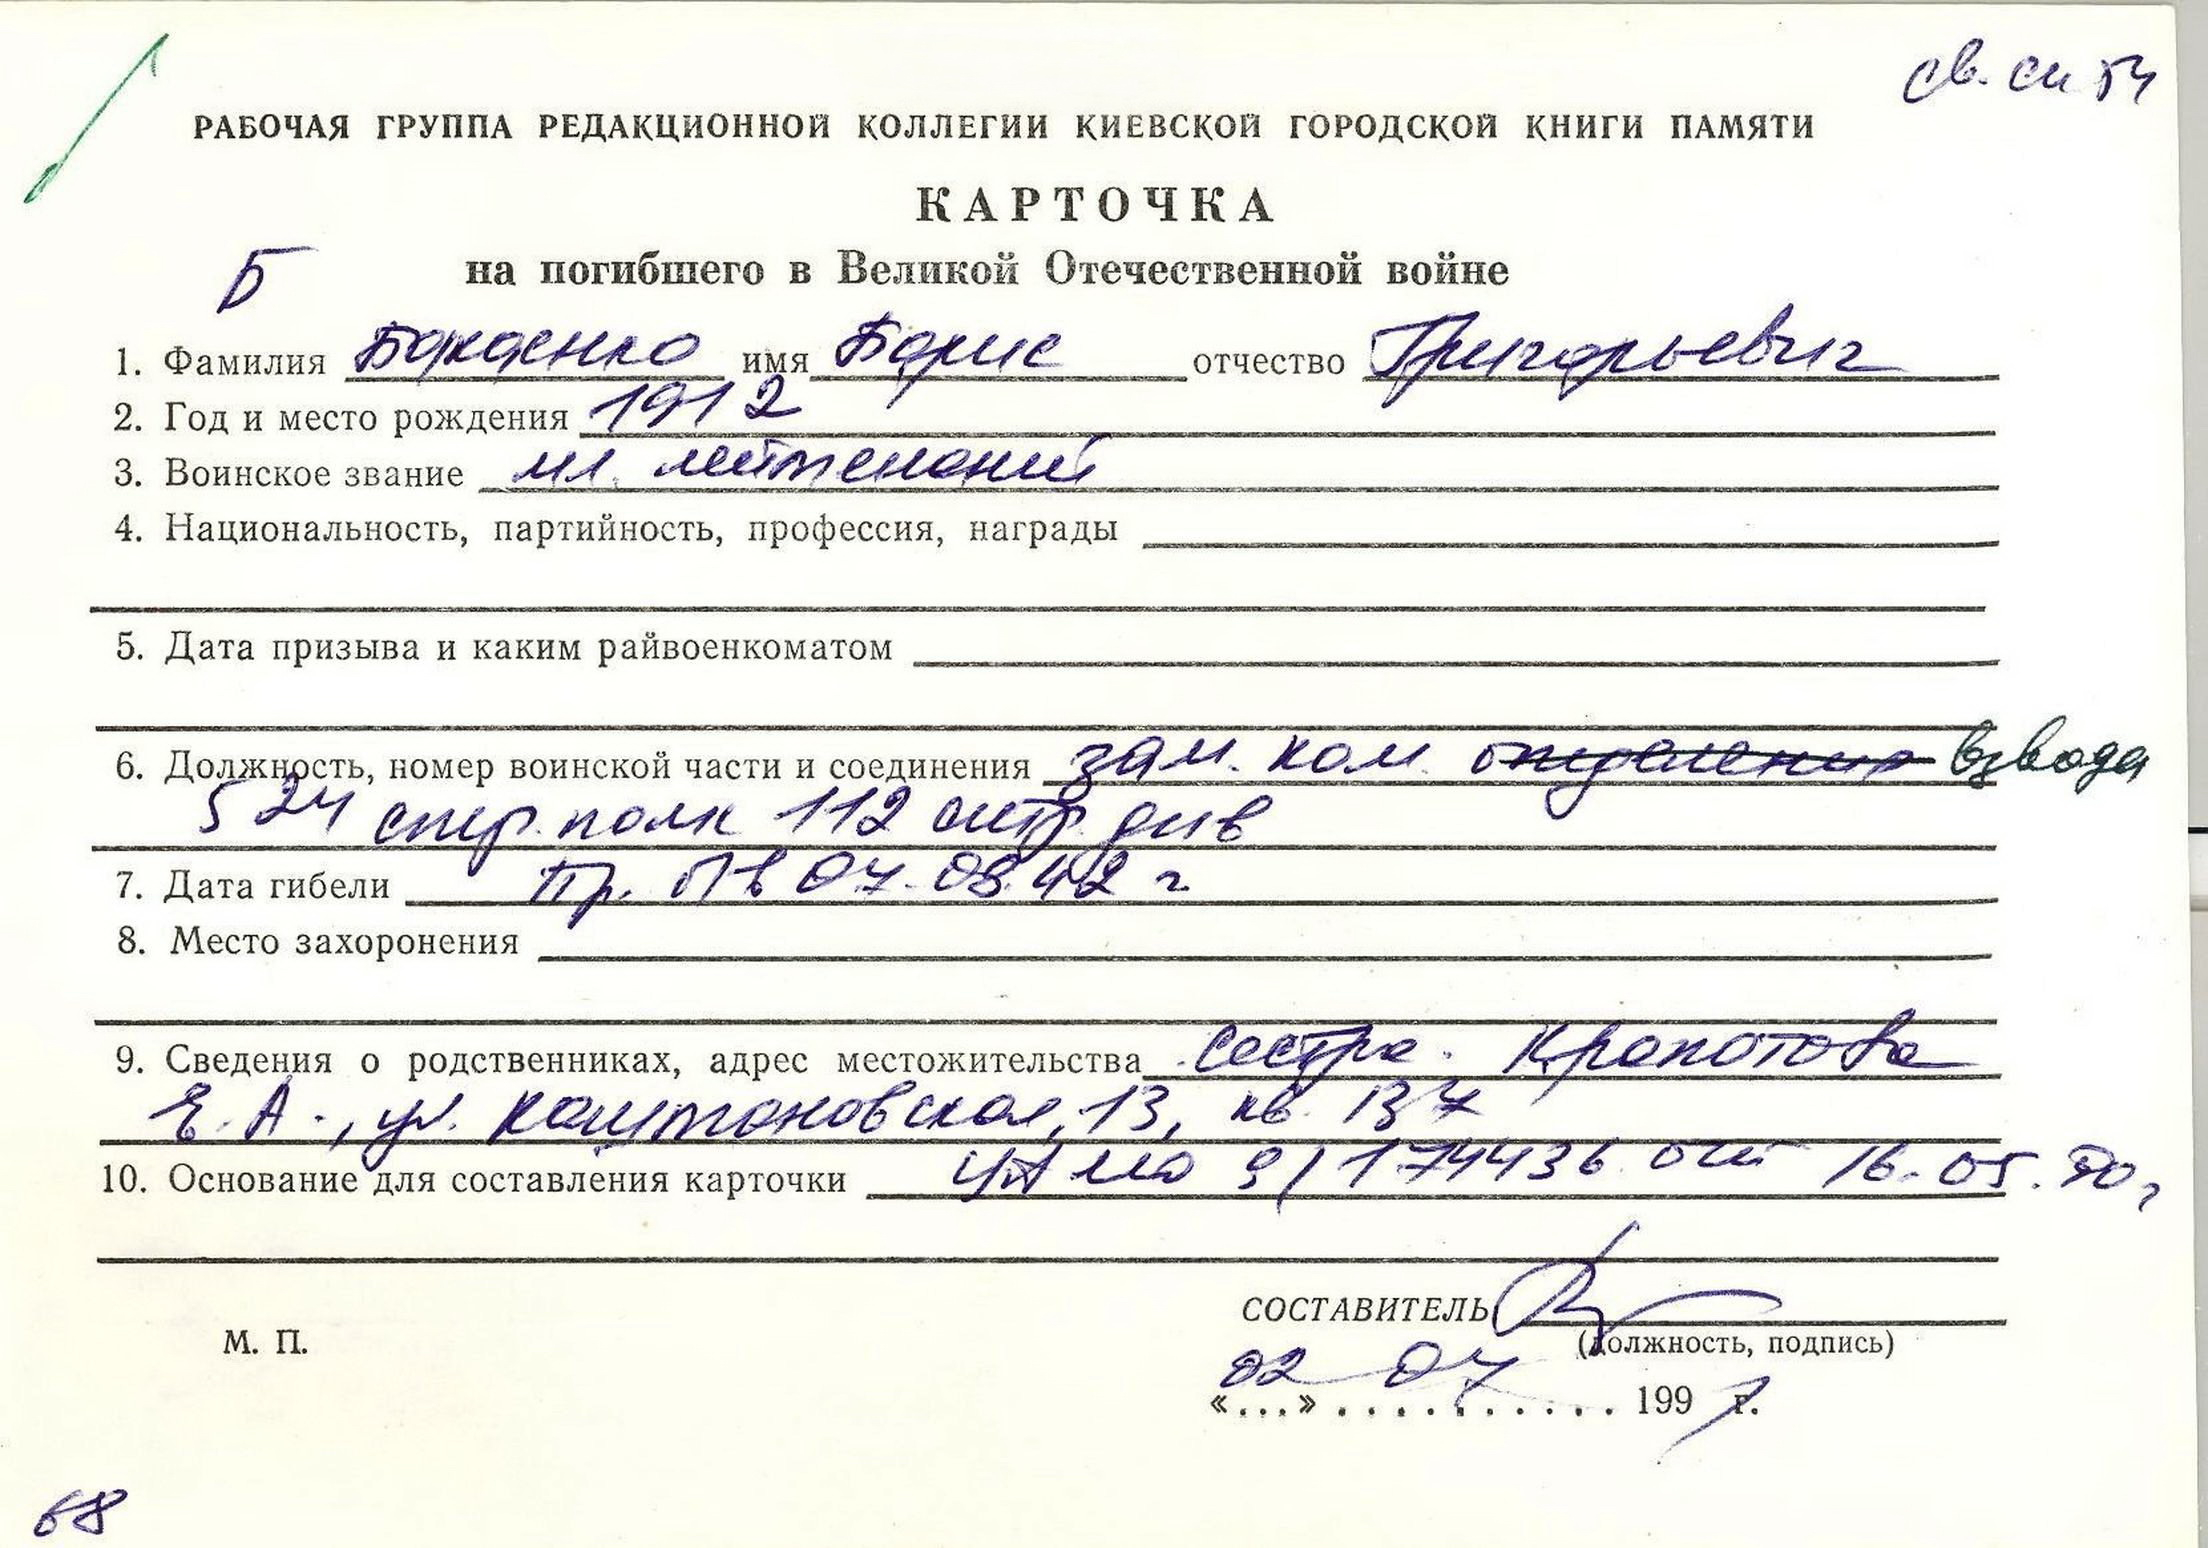 св. сп 54
РАБОЧАЯ ГРУППА РЕДАКЦИОННОЙ КОЛЛЕГИИ КИЕВСКОЙ ГОРОДСКОЙ КНИГИ ПАМЯТИ
КАРТОЧКА
Б
на погибшего в Великой Отечественной войне
1. Фамилия имя Борис отчество Григорьевич
2. Год и место рождения 1912
3. Воинское звание мл. лейтенант
4. Национальность, партийность, профессия, награды
5. Дата призыва и каким райвоенкоматом
6. Должность, номер воинской части и соединения зам. ком. отделения взвода
524 стр. полк 112 стр. див
7. Дата гибели пр. п/в 07.08.42 г
8. Место захоронения
9. Сведения о родственниках, адрес местожительства сестра. Кропотова
Е. А., ул. Каштановская, 13, кв. 137
10. Основание для составления карточки ЦАМО 9/174436 от 16.05.90 г
СОСТАВИТЕЛЬ
М. П.
(должность, подпись)
02 07
«...» .......... 1997 г.
68